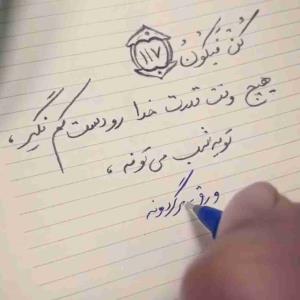 کُن فَیَکُونُ
۱۱۷
هیچ وقت قدرت خدا رو دست کم نگیر،
تو یه شب می تونه،
ورق برگردونه